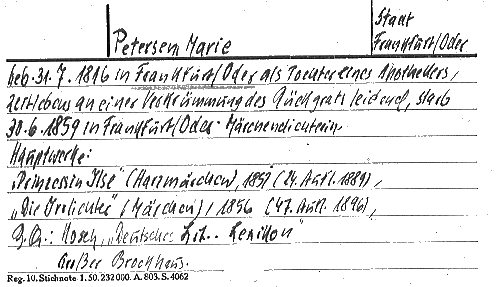 Petersen, Marie
Stadt
Frankfurt/Oder
geb. 31.7.1816 in Frankfurt/Oder als Tochter eines Apothekers,
zeitlebens an einer Verkrümmung des Rückgrats leidend, starb
30.6.1859 in Frankfurt/Oder. Märchendichterin
Hauptwerke:
„Prinzessin Ilse" (Harzmärchen), 185 (24. Aufl. 1889),
„Die Irrlichter" (Märchen), 1856 (47. Aufl. 1896),
: Kosch, „Deutsches Lit.. Lexikon"
Großer Brockhaus.
Reg. 10. Stichnote 1. 50. 232 000. A. 803. S. 4062